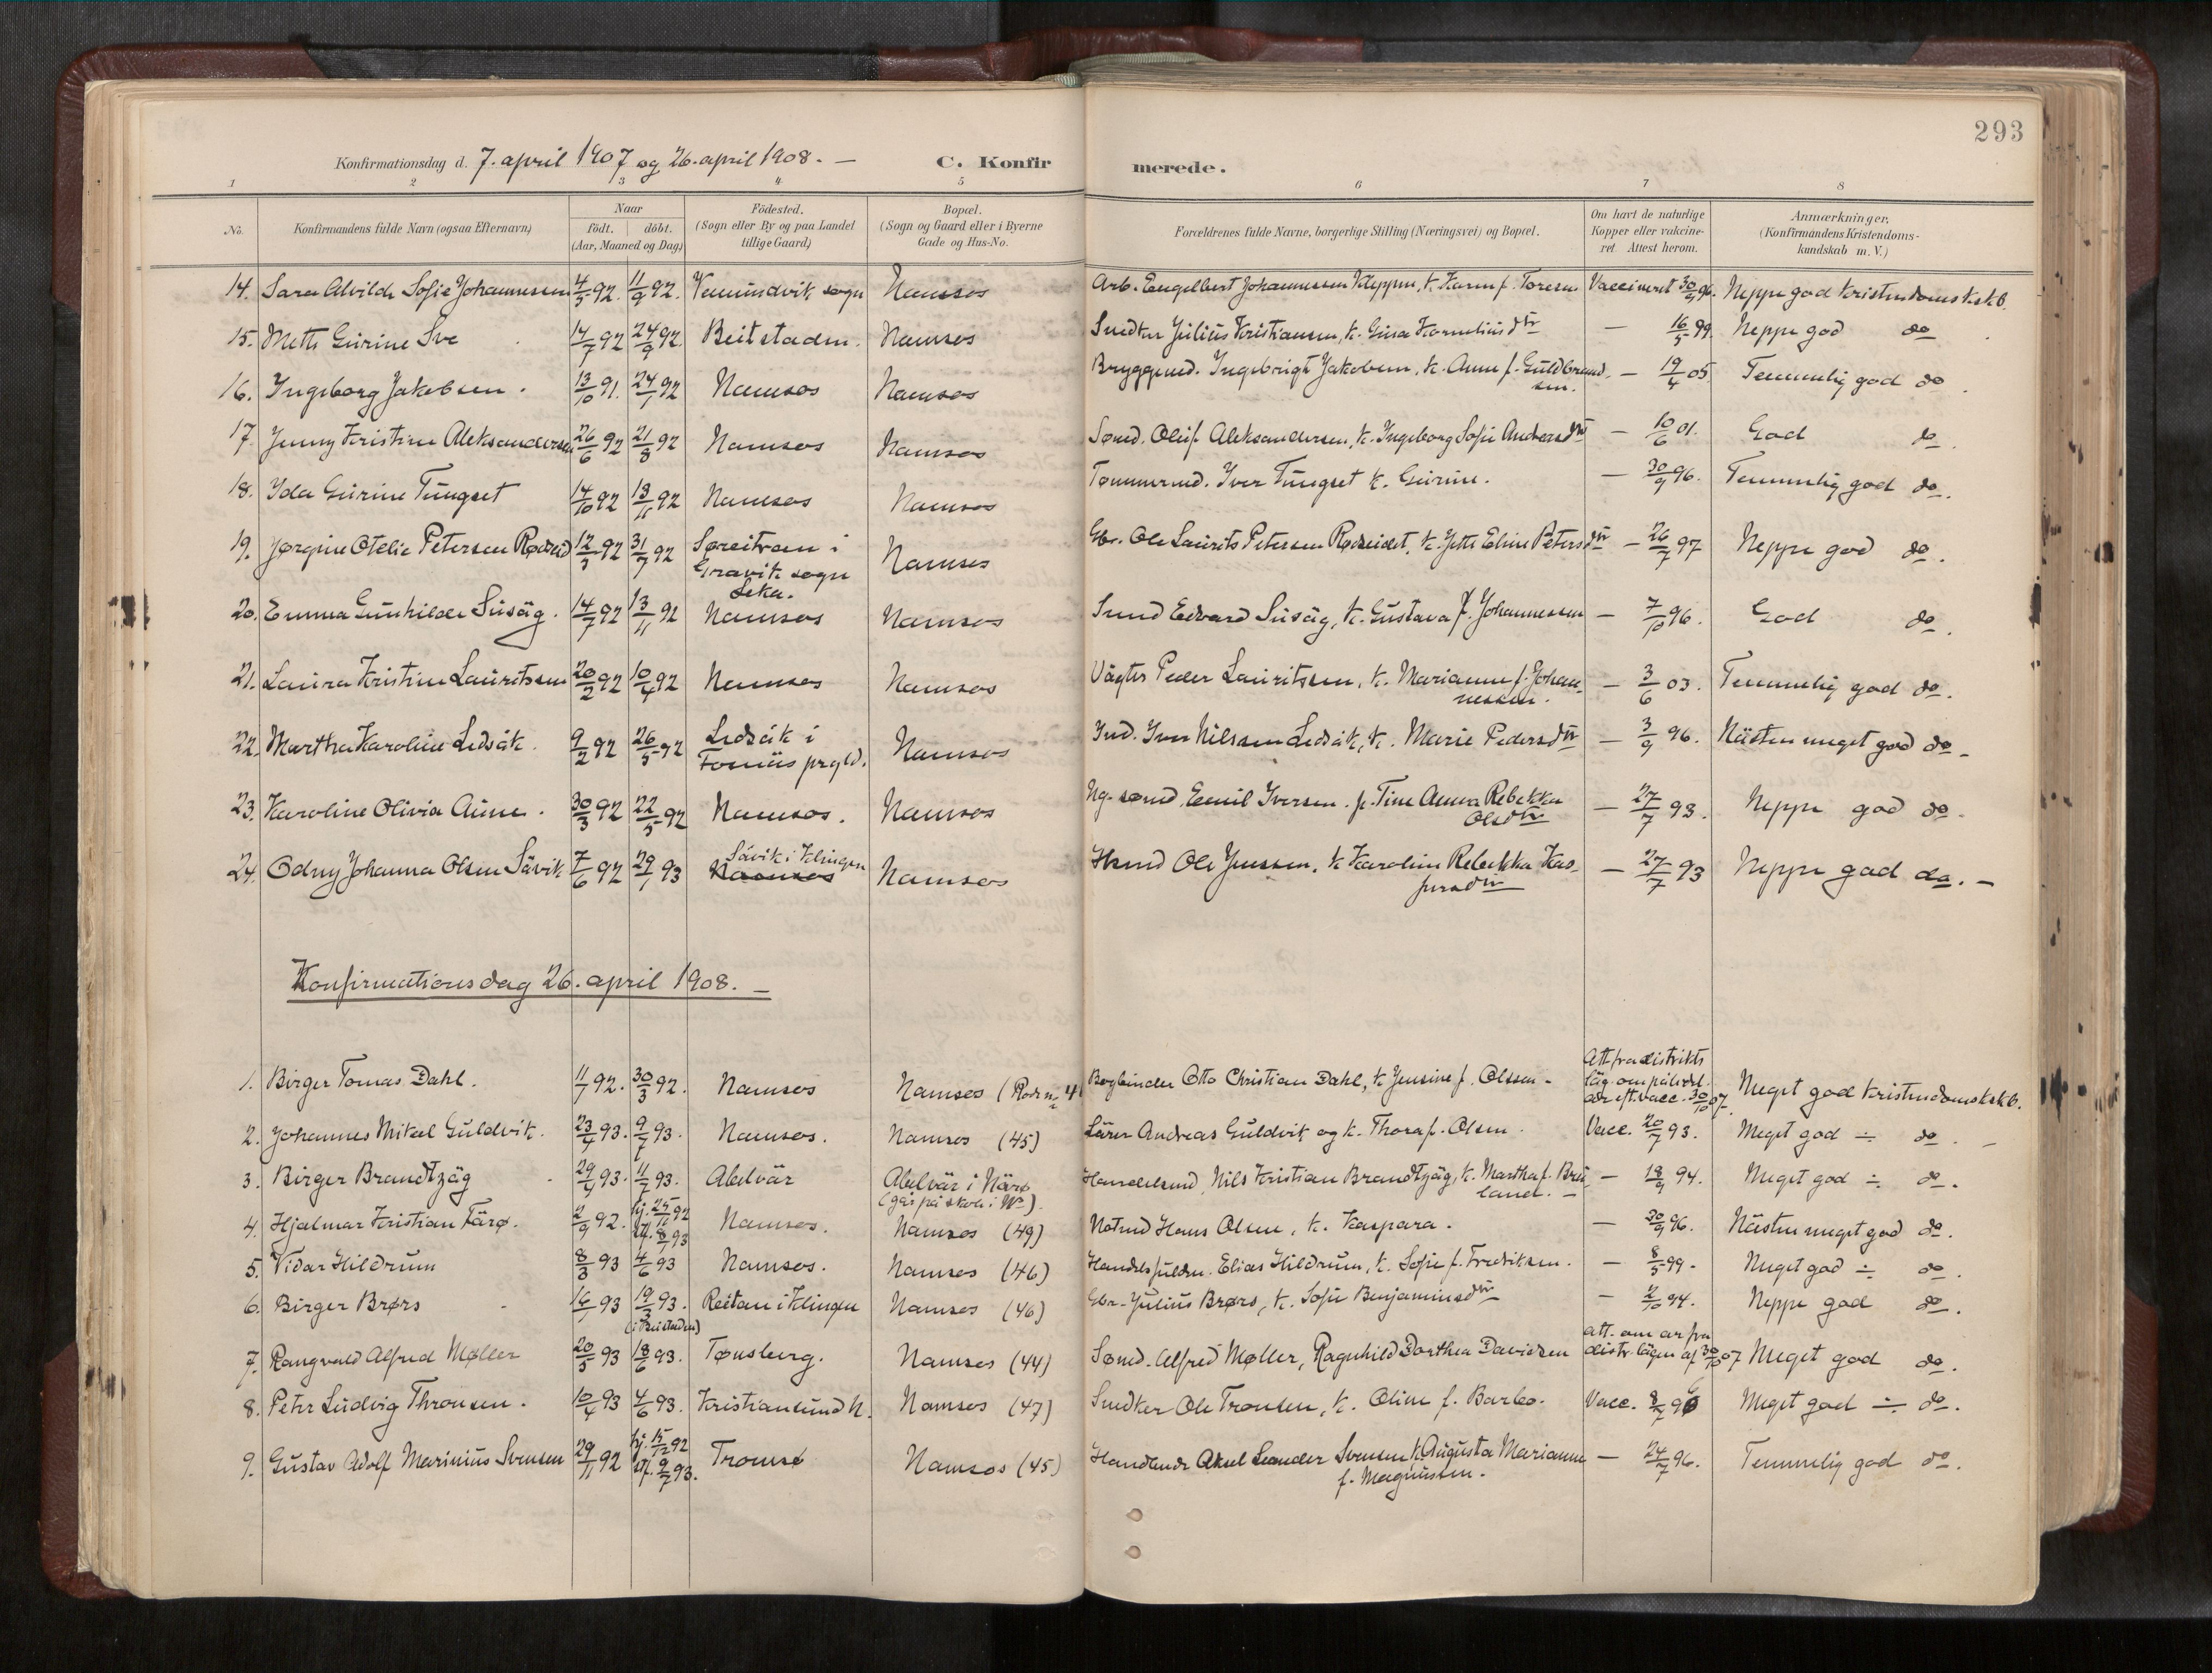 293
Konfirmationsdag d. 7. april 1907 og 26. april 1908. —
C. Konfirmerede.
1 2 3 4 5 6 7 8
No.
Konfirmandens fulde Navn (ogsaa Efternavn)
Naar
födt. döbt.
(Aar, Maaned og Dag)
Födested.
(Sogn eller By og paa Landet
tillige Gaard)
Bopæl.
(Sogn og Gaard eller i Byerne
Gade og Hus-No.
Forældrenes fulde Navne, borgerlige Stilling (Næringsvei) og Bopæl.
Om havt de naturlige
Kopper eller vakcine-
ret. Attest herom.
Anmærkninger,
(Konfirmandens Kristendoms-
kundskab m. V.)
14. Sara Alvilde Sofie Johannessen 4/5 92. 11/9 92. Vemundvik sogn Namsos Arb. Engelbert Johannessen Kleppen, k. Karen f. Toresen Vaccineret 30/9 96. Neppe god kristendomskskb.
15. Mette Gurine Sve 14/7 92 24/9 92. Beitstaden. Namsos Smedker Julius Kristiansen, k. Gina Korneliusdtr — 16/5 99. Neppe god do
16. Ingeborg Jakobsen. 13/10 91. 24/1 92 Namsos Namsos Bryggemd. Ingebrigt Jakobsen, k. Anne f. Guldbrand- — 19/4 05. Temmelig god do.
sen.
17. Jenny Kristine Aleksandersen 26/6 92 21/8 92 Namsos Namsos Sømd. Oluf Aleksandersen, k. Ingeborg Sofie Andersdtr — 10/6 01. God do.
18. Ida Gurine Tungset 14/10 92 13/11 92 Namsos Namsos Tømmermd. Iver Tungset k. Gurine. — 30/9 96. Temmelig god do.
19. Jørgine Otelie Petersen Rødseid 12/3 92 31/7 92 Søreitran i Namsos Gbr. Ole Laurits Petersen Rødseidet, k. Jette Eline Petersdtr — 26/7 97 Neppe god do.
Gravik sogn
Leka.
20. Emma Gunhilde Susäg. 14/7 92 13/11 92 Namsos Namsos Smed Edvard Susäg, k. Gustava f. Johannessen — 7/10 96. God do.
21. Laura Kristine Lauritssen 20/2 92 10/4 92 Namsos Namsos Vägter Peder Lauritssen, k. Marianne f. Johan- — 3/6 03. Temmelig god do.
nessen.
22. Martha Karoline Ledsåk. 9/2 92 26/5 92 Ledsåk i Namsos Ind. Iver Nilssen Ledsåk, k. Marie Pedersdtr — 3/9 96. Nästen meget god do.
Fosnäs prgld.
23. Karoline Olivia Aune. 30/3 92 22/5 92 Namsos. Namsos Ug. sømd. Emil Iversen. p. Tine Anna Rebekka — 27/7 93. Neppe god do.
Olsdtr
24. Odny Johanna Olsen Sävik 7/6 92 29/1 93 Sävik i Klingen Namsos Hsmd Ole Jenssen, k Karoline Rebekka Kas- — 27/7 93 Neppe god do. —
Namsos
persdtr
Konfirmationsdag 26. april 1908. —
Att. fra distrikts
läg. om pålidel.
1. Birger Tomas Dahl. 11/7 92. 30/3 92. Namsos Namsos (Rode nr 4 Bogbinder Otto Christian Dahl, k. Jensine f. Olssen. eft. vacc. 30/10 07. Meget god kristendomskskb.
2. Johannes Mikael Guldvik. 23/4 93. 9/7 93. Namsos. Namsos (45) Lärer Andreas Guldvik og k. Thora f. Olsen. Vacc. 20/7 93. Meget god ÷ do. —
3. Birger Brandtzäg 29/4 93. 11/7 93. Abelvär Abelvär i Närø Handelsmd. Nils Kristian Brandtzäg, k. Martha f. Brei- — 18/9 94. Meget god ÷ do.
(går på skole i Ns). land. —
4. Hjalmar Kristian Färø. 2/9 92. hj. 25/11 92 Namsos. Namsos (49) Notmd Hans Olsen, k. Kaspara. — 30/9 96. Nästen meget god do.
stf. 8/1 93
5. Vidar Hildrum 8/3 93 4/6 93 Namsos. Namsos (46) Handelsfuldm. Elias Hildrum, k. Sofie f. Fredriksen. — 8/5 99. Meget god ÷ do.
6. Birger Brørs 16/1 93 19/3 93. Reitan i Klingen Namsos (46) Gbr. Julius Brørs, k. Sofie Benjaminsdtr — 2/10 94. Neppe god do.
(i Beistaden)
att. om ar fra
7. Rangvald Alfred Møller 20/5 93 18/6 93. Tønsberg. Namsos (44) Sømd. Alfred Møller, Ragnhild Dorthea Davidsen distr. lägen af 30/10 07 Meget god do.
8. Peter Ludvig Thronsen. 10/4 93 4/6 93. Kristiansund N. Namsos (47) Smedker Ole Tronsen, k. Oline f. Barbo. Vacc. 8/7 96 Meget god ÷ do.
9. Gustav Adolf Marinius Svensen 29/11 92 hj. 15/12 92 Tromsø Namsos (45) Handlende Aksel Leander Svensen k. Augusta Marianne — 24/7 96. Temmelig god do.
stf. 9/7 93. f. Magnussen.